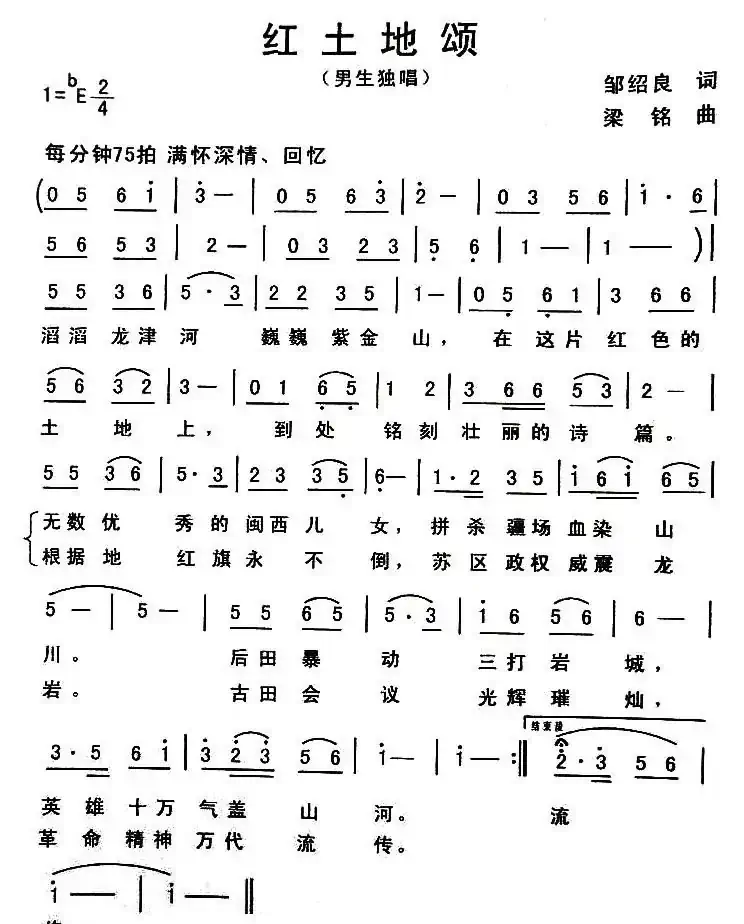 红土地颂
（男生独唱）
1=ᵇE 2/4
邹绍良 词
梁铭 曲
每分钟75拍 满怀深情、回忆
(0 5 6 i | 3 — | 0 5 6 3 | 2 — | 0 3 5 6 | i · 6 |
5 6 5 3 | 2 — | 0 3 2 3 | 5 6 | 1 — | 1 — ) |
5 5 3 6 | 5 · 3 | 2 2 3 5 | 1 — | 0 5 6 1 | 3 6 6 |
滔滔龙津河 巍巍紫金山，在这片红色的
5 6 3 2 | 3 — | 0 1 6 5 | 1 2 | 3 6 6 5 3 | 2 — |
土地上，到处铭刻壮丽的诗篇。
5 5 3 6 | 5 · 3 | 2 3 3 5 | 6 — | 1 · 2 3 5 | i 6 i 6 5 |
无数优秀的闽西儿女，拼杀疆场血染山
根据地红旗永不倒，苏区政权威震龙
5 — | 5 — | 5 5 6 5 | 5 · 3 | i 6 5 6 | 6 — |
川。后田暴动三打岩城，
岩。古田会议光辉璀灿，
3 · 5 6 i | 3 2 3 5 6 | i — | i — :‖ 结束段 2 · 3 5 6 |
英雄十万气盖山河。流
革命精神万代流传。
i — | i — ‖